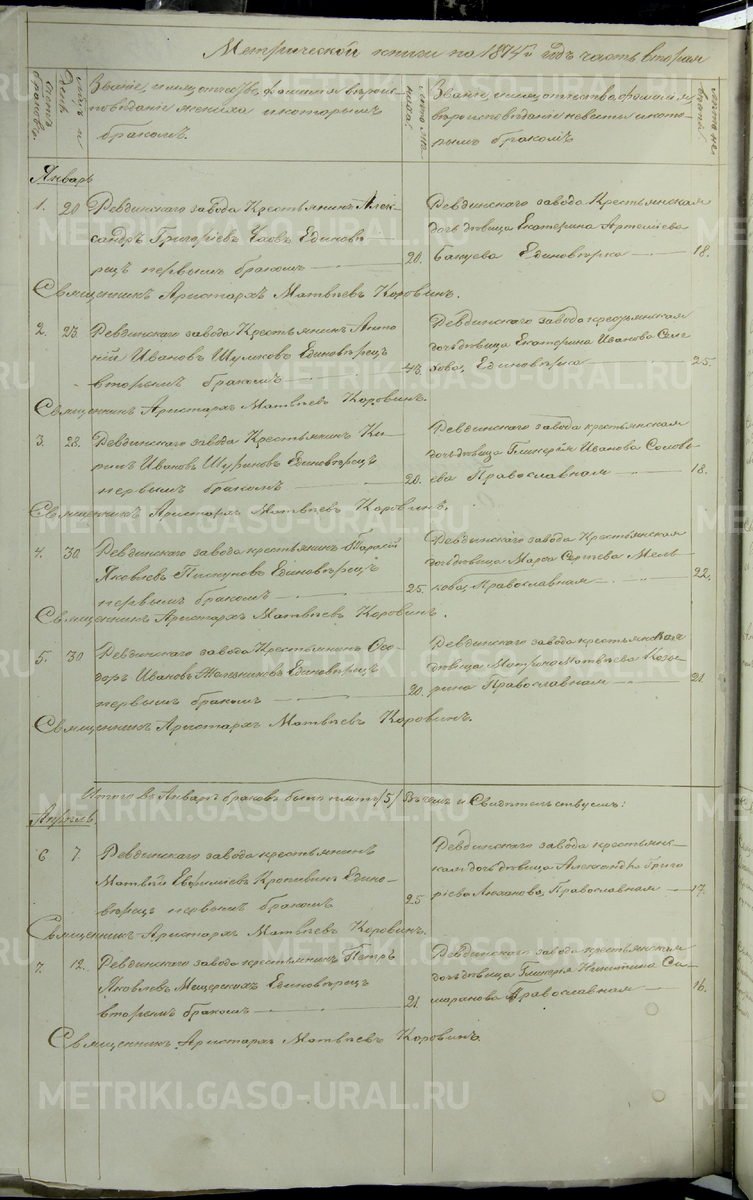 Метрической книги на 1874й годъ часть вторая
Счетъ браковъ.
Мѣсяцъ и день
Званіе, имя, отчество, фамилія и вѣроис-
повѣданіе жениха и которымъ
бракомъ.
Лѣта жениха.
Званіе, имя, отчество, фамилія и
вѣроисповѣданіе невѣсты и кото-
рымъ бракомъ
Лѣта невѣсты.
Январь
1. 20 Ревдинскаго завода Крестьянинъ Алек-
сандръ Григоріевъ Единовѣ-
рецъ первымъ бракомъ 20.
Ревдинскаго завода Крестьянская
дочь дѣвица Екатерина Артеміева
Единовѣрка 18.
Священникъ Аристархъ Матвѣевъ Коровинъ.
2. 23. Ревдинскаго завода Крестьянинъ Анто-
ній Ивановъ Шумковъ Единовѣрецъ
вторымъ бракомъ 43.
Ревдинскаго завода крестьянская
дочь дѣвица Екатерина Иванова
Единовѣрка 25.
Священникъ Аристархъ Матвѣевъ Коровинъ.
3. 28. Ревдинскаго завода Крестьянинъ Ки-
рилъ Ивановъ Единовѣрецъ
первымъ бракомъ 20.
Ревдинскаго завода крестьянская
дочь дѣвица Гликерія Иванова Соловь-
ева Православная 18.
Священникъ Аристархъ Матвѣевъ Коровинъ.
4. 30. Ревдинскаго завода крестьянинъ Тарасій
Яковлевъ Единовѣрецъ
первымъ бракомъ 25.
Ревдинскаго завода Крестьянская
дочь дѣвица Марѳа Сергѣева Мель-
кова, Православная 22.
Священникъ Аристархъ Матвѣевъ Коровинъ.
5. 30 Ревдинскаго завода Крестьянинъ Ѳео-
доръ Ивановъ Единовѣрецъ
первымъ бракомъ 20.
Ревдинскаго завода крестьянская
дѣвица Матрона Матвѣева Козы-
рина Православная 21
Священникъ Аристархъ Матвѣевъ Коровинъ.
Итого въ Январѣ браковъ было пять /5/ Въ чемъ и Свидѣтельствуемъ:
Апрѣль
6 7. Ревдинскаго завода крестьянинъ
Матвѣй Евѳиміевъ Кропивинъ Едино-
вѣрецъ первымъ бракомъ 25
Ревдинскаго завода крестьянс-
кая дочь дѣвица Александра Григо-
ріева Православная 17.
Священникъ Аристархъ Матвѣевъ Коровинъ.
7. 12. Ревдинскаго завода крестьянинъ Петръ
Яковлевъ Мещерскихъ Единовѣрецъ
вторымъ бракомъ 21.
Ревдинскаго завода крестьянская
дочь дѣвица Гликерія Никитина Са-
маранова Православная 16.
Священникъ Аристархъ Матвѣевъ Коровинъ.
METRIKI.GASO-URAL.RU